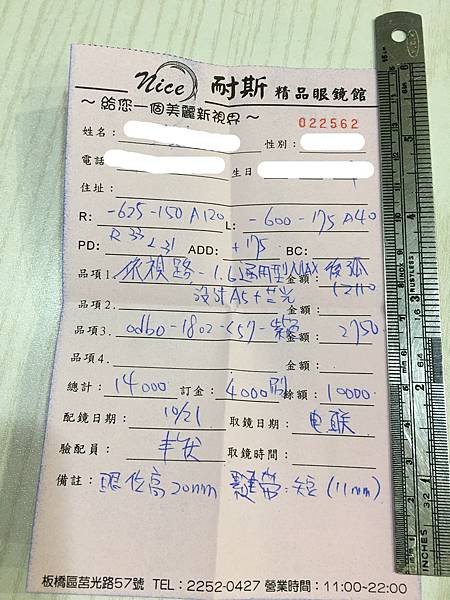 nice 耐斯 精品眼鏡館
～給您一個美麗新視界～
022562
姓名： 性別：
電話： 生日
住址：
R: -625-150 A120 L: -600-175 A40
PD: R 33 L 31 ADD: +175 BC:
品項1. 依視路-1.6適用型 金額： 後弧
設計A5+ 12110
品項2. 金額：
品項3. odbo-1802-C57-紫 金額： 2750
品項4. 金額：
總計： 14000 訂金： 4000刷 餘額： 10000
配鏡日期： 10/21 取鏡日期： 電聯
驗配員： 取鏡時間：
備註： 眼位高20mm 短(11mm)
板橋區莒光路57號 TEL：2252-0427 營業時間：11:00~22:00
INCHES